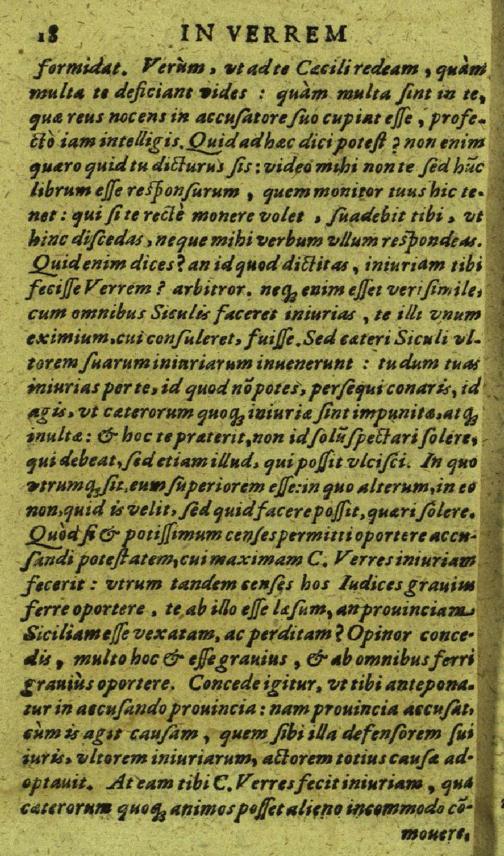 18 IN VERREM
formidat. Verùm, vt ad te Cæcili redeam, quàm
multa te deficiant vides : quàm multa sint in te,
quæ reus nocens in accusatore suo cupiat esse, profe-
ctò iam intelligis. Quid ad hæc dici potest ? non enim
quæro quid tu dicturus sis : video mihi non te sed hũc
librum esse responsurum, quem monitor tuus hic te-
net : qui si te rectè monere volet, suadebit tibi, vt
hinc discedas, neque mihi verbum vllum respondeas.
Quid enim dices ? an id quod dictitas, iniuriam tibi
fecisse Verrem ? arbitror. neq; enim esset verisimile,
cum omnibus Siculis faceret iniurias, te illi vnum
eximium, cui consuleret, fuisse. Sed cæteri Siculi vl-
torem suarum iniuriarum inuenerunt : tu dum tuas
iniurias per te, id quod nõ potes, persequi conaris, id
agis, vt cæterorum quoq; iniuriæ sint impunitæ, atq;
inultæ : & hoc te præterit, non id solũ spectari solere,
qui debeat, sed etiam illud, qui possit vlcisci. In quo
vtrumq; sit, eum superiorem esse : in quo alterum, in eo
non, quid is velit, sed quid facere possit, quæri solere.
Quòd si & potissimum censes permitti oportere accu-
sandi potestatem, cui maximam C. Verres iniuriam
fecerit : vtrum tandem censes hos Iudices grauius
ferre oportere, te ab illo esse læsum, an prouinciam
Siciliam esse vexatam, ac perditam ? Opinor conce-
dis, multo hoc & esse grauius, & ab omnibus ferri
grauiùs oportere. Concede igitur, vt tibi antepona-
tur in accusando prouincia : nam prouincia accusat,
cùm is agit causam, quem sibi illa defensorem sui
iuris, vltorem iniuriarum, actorem totius causæ ad-
optauit. At eam tibi C. Verres fecit iniuriam, quæ
cæterorum quoq; animos posset alieno incommodo cõ-
mouere.